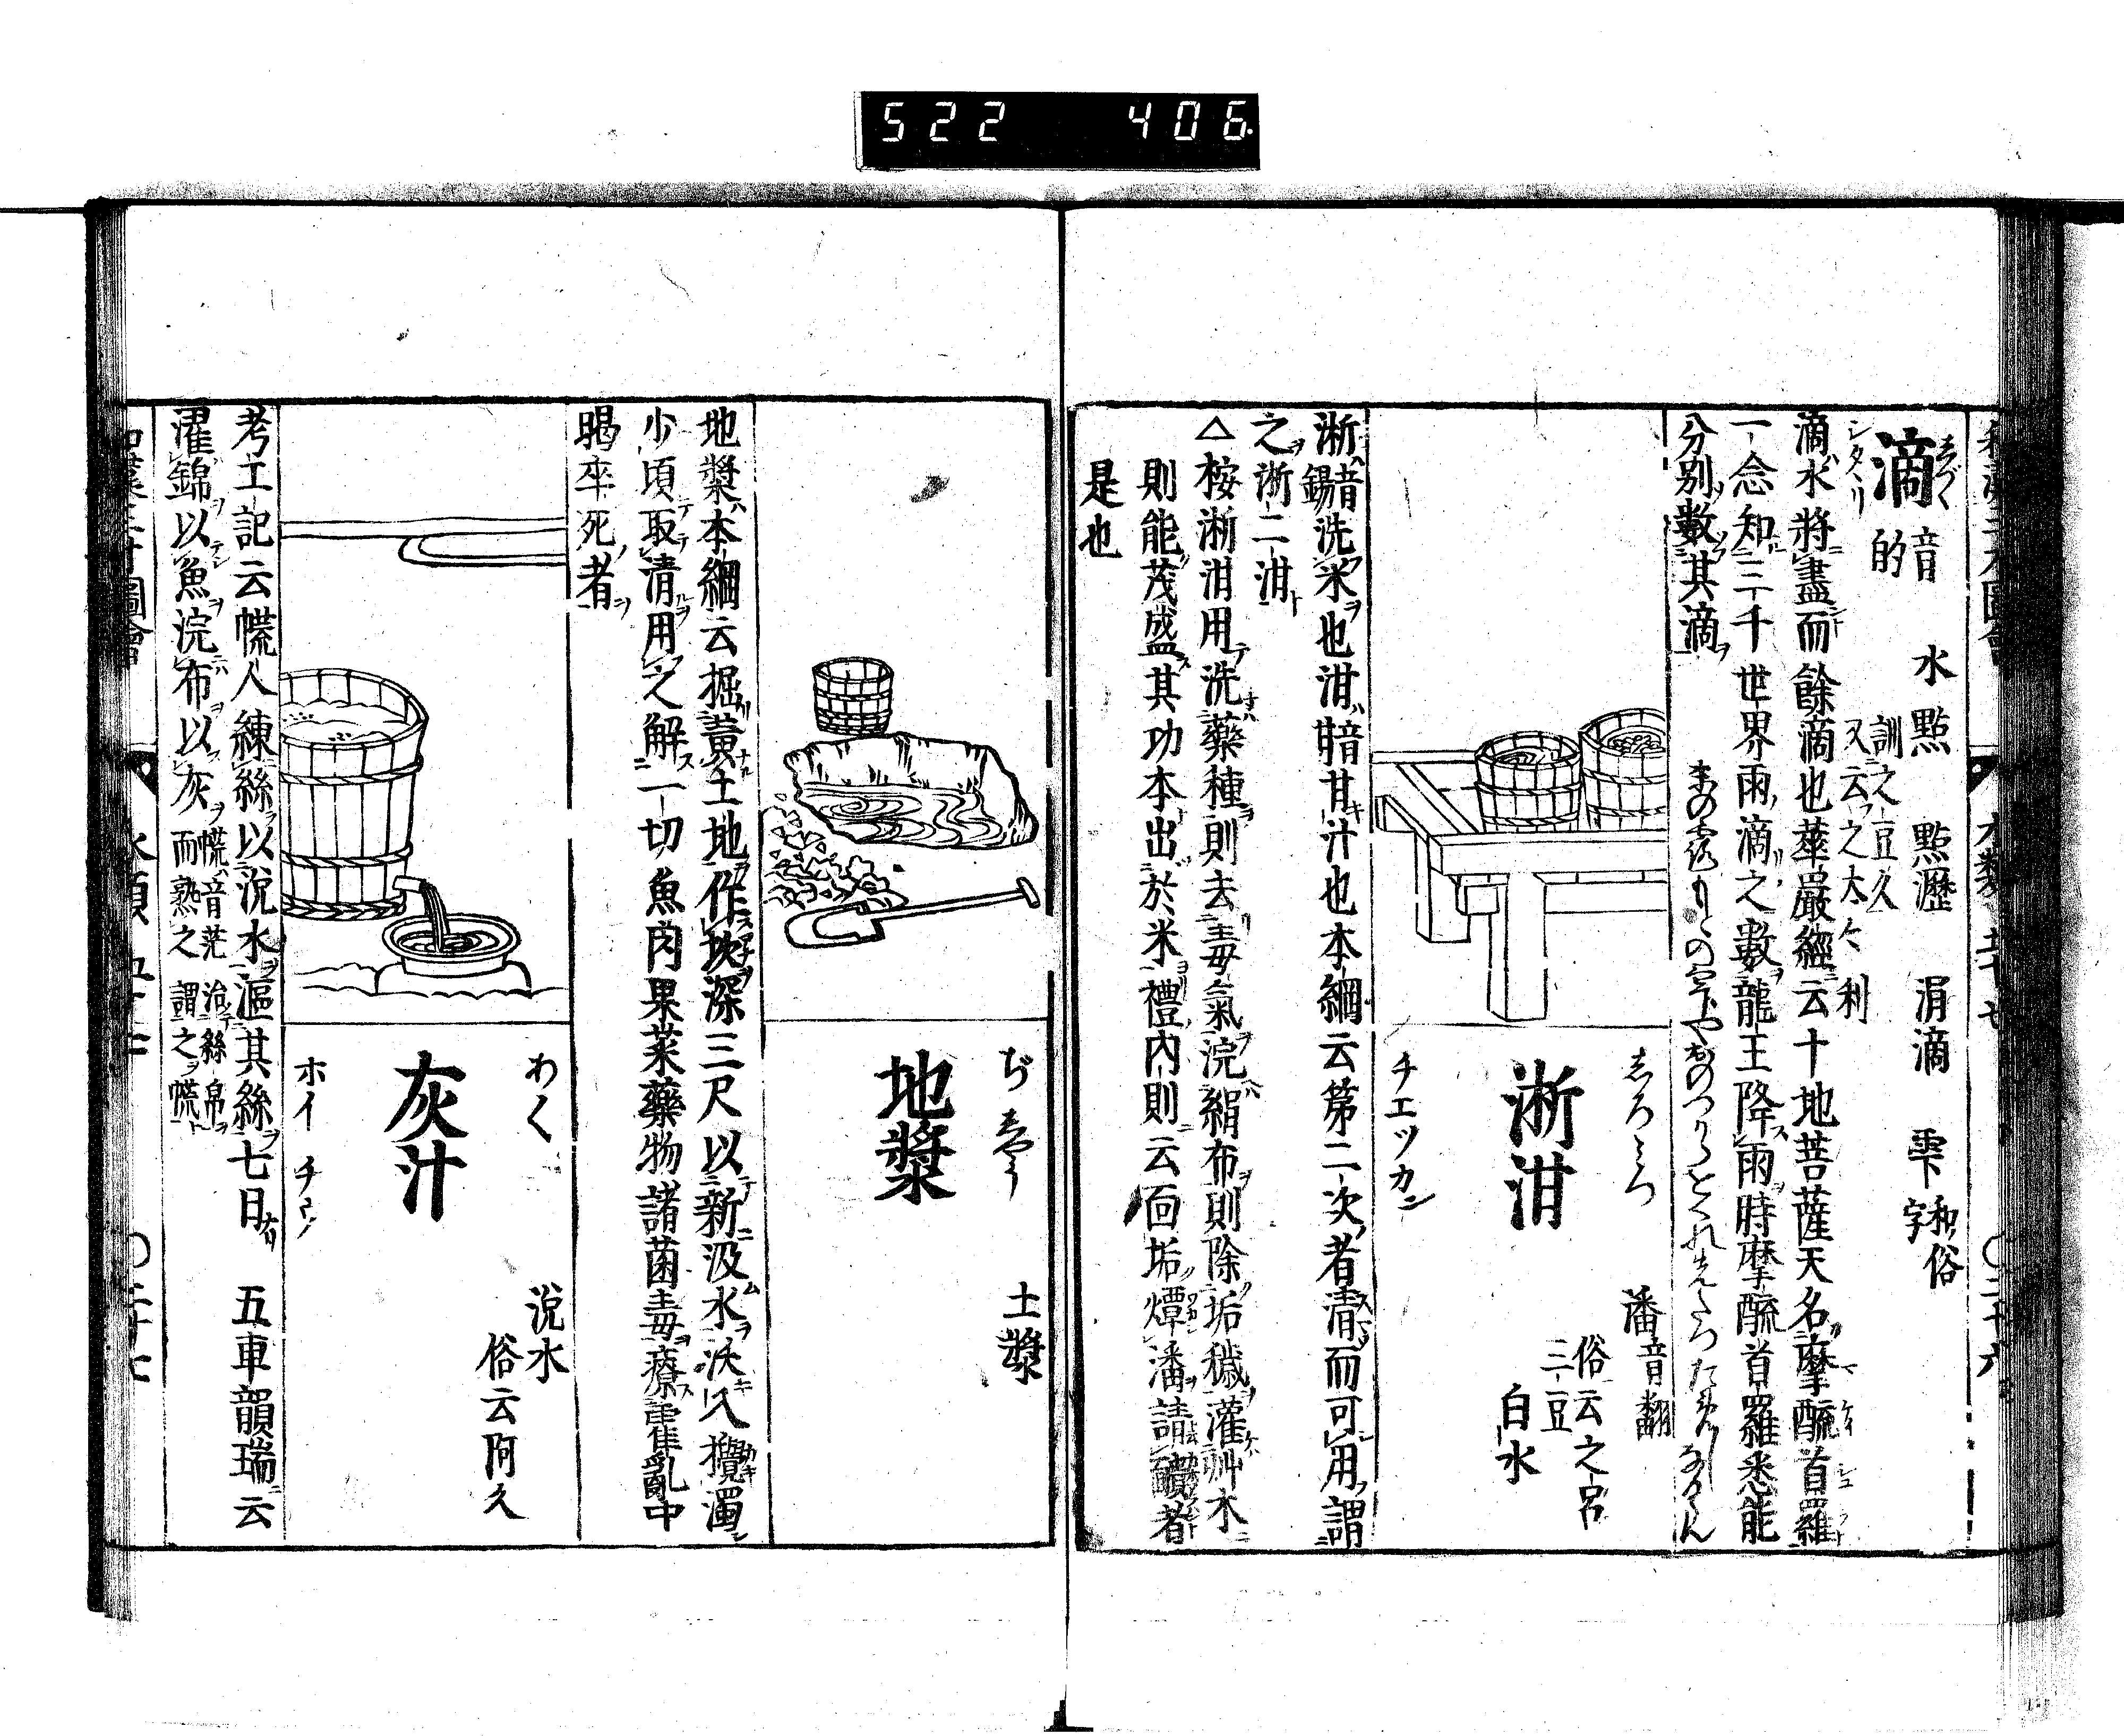 522 406
滴 音的 水㸃 㸃瀝 涓滴 雫 和俗字
しづく
シタヽリ
訓之豆久
又云之太々利
滴水將盡而餘滴也華嚴經云十地菩薩天名摩醯首羅
一念知三千世界雨滴之數龍王降雨時摩醯首羅悉能
分別數其滴
淅泔
しろみづ
チエツカン
潘音翻
俗云之呂
三豆
白水
淅音錫洗米也泔音甘甘汁也本綱云第二次者清而可用謂
之淅二泔
△桉淅泔用洗藥種則去毒氣浣絹布則除垢穢灌艸木
則能茂盛其功本出於米禮內則云面垢燂潘請靧者
是也
地漿
ぢしやう
土漿
地漿本綱云掘黃土地作坎深三尺以新汲水沃入攪濁
少頃取清用之解一切魚肉果菜藥物諸菌毒療霍亂中
暍卒死者
灰汁
あく
ホイ チヨ
涗水
俗云阿久
考工記云㡛人練絲以涗水漚其絲七日 五車韻瑞云
濯錦以魚浣布以灰 㡛音茫治絲帛
而熟之謂之㡛